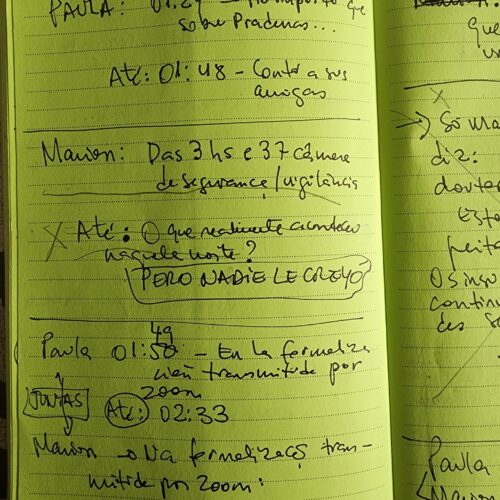 PAULA: 01:29 - que
sobre Pradenas...
Até: 01:48 - Contó a sus
amigas
Marion: Das 3 hs e 37 câmera
de segurança/vigilância
X Até: O que realmente aconteceu
naquela noite?
PERO NADIE LE CREYÓ
Paula 01:50 49 - En la formaliza
ción transmitida por
zoom
JUNTAS Até: 02:33
Marion → Na formalizaçã tran-
mitida por Zoom:
que
X
→ Só Ma
diz:
douto
Esta
peita
Os ins
contin
des
Paula
Marion